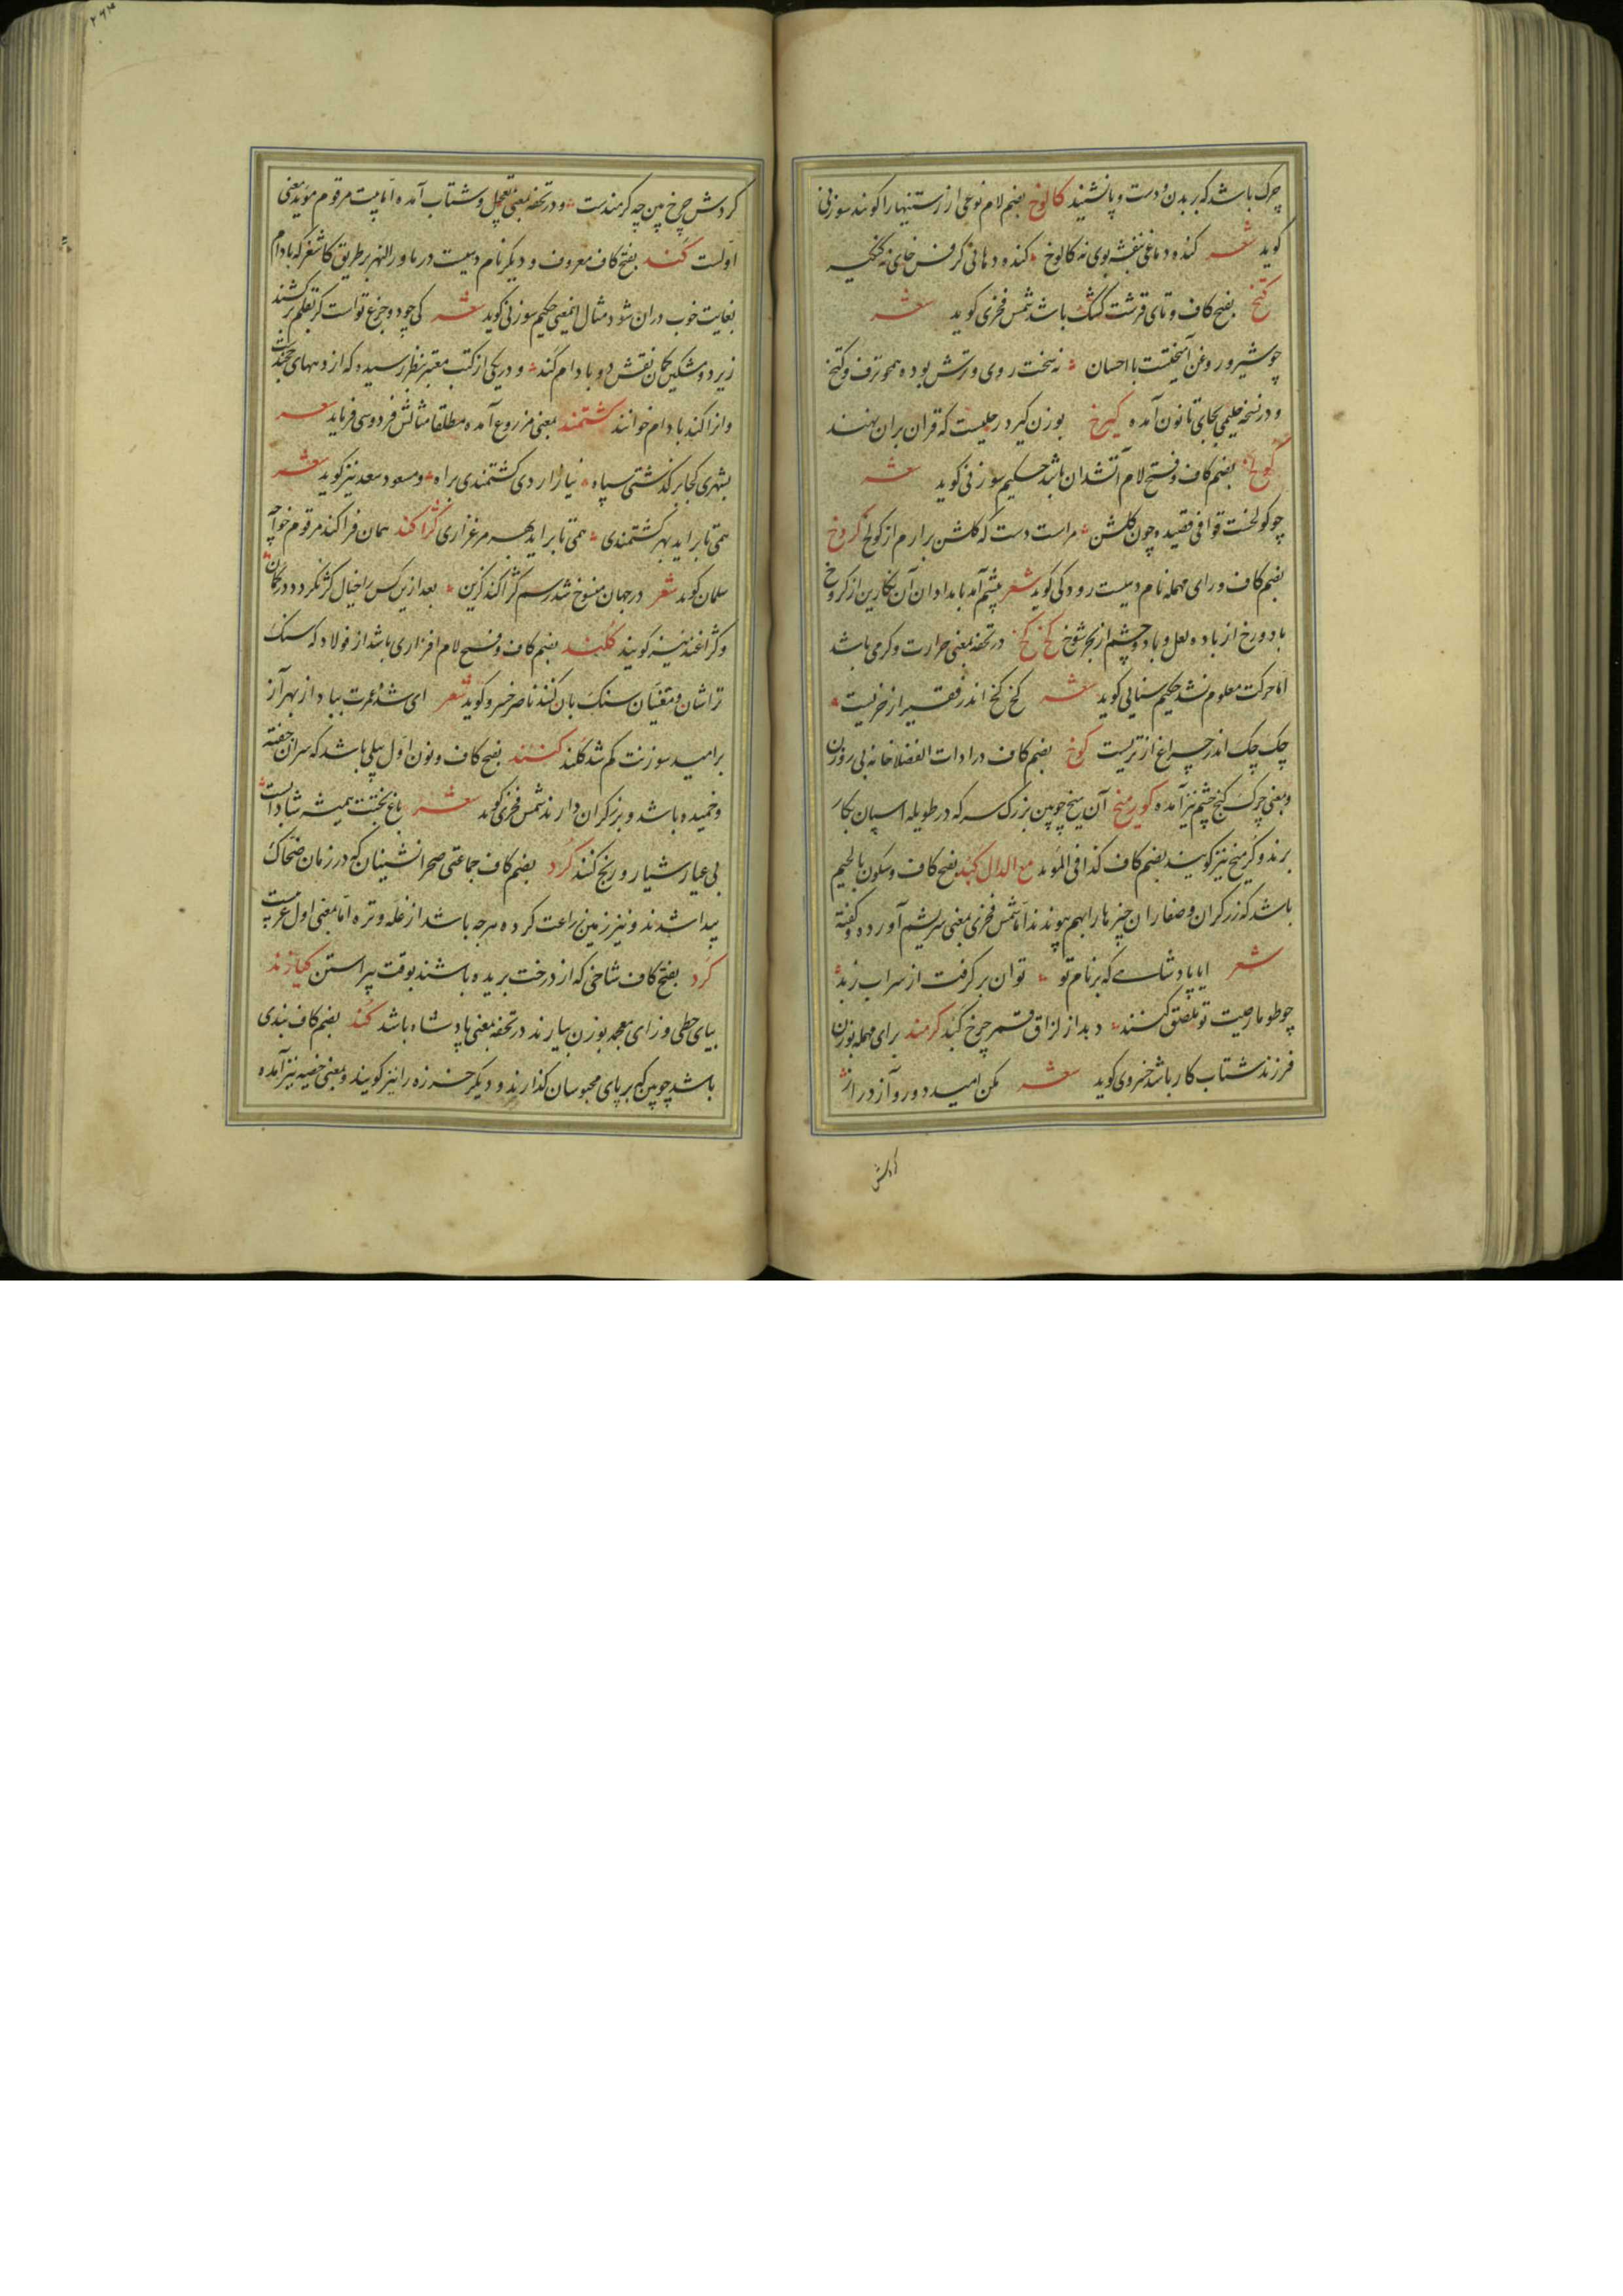 چرک باشد که بر بدن و دست و پا نشیند کالوخ بضم لام نوعی از رستنیها را کویند سوزنی
کوید شعر کنده دماغی بنفشه بوی نه کالوخ کنده دهانی کرفس خای نه
کتخ بفتح کاف و تای قرشت کشک باشد شمس فخری کوید شعر
چو شیر و روغن آمیختست با احسان نه سخت روی و ترش بوده همچو ترف و کتخ
و در نسخه حلیمی بجای تا نون آمده کیرخ بوزن کیرد رحلیست که قران بران نهند
کولخ بضم کاف و فتح لام آتشدان باشد حکیم سوزنی کوید شعر
چو کولخست قوافی قصیده چون کلشن مراست دست که کلشن برارم از کولخ کروخ
بضم کاف و رای مهمله نام دهیست رودکی کوید شعر پیشم آمد بامدادان آن نکارین از کروخ
با دو رخ از باده لعل و با دو چشم از سحر شوخ کخ کخ در تحفه بمعنی حرارت و کرمی باشد
اما حرکت معلوم نشد حکیم سنایی کوید شعر کخ کخ اندر فقیر از خریست
چک چک اندر چراغ از تریست کوخ بضم کاف در ادات الفضلا خانه بی روزن
و بمعنی چرک کنج چشم نیز آمده کورمیخ آن میخ چوبین بزرک سر که در طویله اسپان بکار
برند و کرمیخ نیز کویند بضم کاف کذا فی المؤید مع الدال کبد بفتح کاف و سکون با لحیم
باشد که زرکران و صفاران چیزها را بهم پیوندند اما شمس فخری بمعنی سریشم آورده و کفته
شعر ایا پادشاهی که بر نام تو توان بر کرفت از سراب زبد
چو طومار صیت تو ملصق کنند دبد از لزاق قمر چرخ کبد کرمند برای مهمله بوزن
فرزند شتاب کار باشد خسروی کوید شعر مکن امید دور و آز دراز
کردش
کردش چرخ بین چه کرمندست و در تحفه بمعنی تعجیل و شتاب آمده اما بیت مرقوم مؤید معنی
اولست کند بفتح کاف معروف و دیکر نام دهیست در ماورالنهر بر طریق کاشغر که بادام
بغایت خوب دران شود مثال این معنی حکیم سوزنی کوید شعر کر بقلم برکشند
زیر دو مشکین کمان نقش دو بادام کند و در یکی از کتب معتبر بنظر رسیده که از دههای خجندست
وانرا کند بادام خوانند کشتمند بمعنی مزروع آمده مطلقا مثالش فردوسی فرماید شعر
بشهری کجا برکذشتی سپاه نیازاردی کشتمندی براه و مسعود سعد نیز کوید شعر
همی تا براید بهر کشتمندی همی تا براید بهر مرغزاری کژاکند همان قزاکند مرقوم خواجه
سلمان کوید شعر در جهان منسوخ شد رسم کژاکند کزین بعد ازین کس را خیال کژ نکردد در کمان
و کژاغند نیز کویند کلند بضم کاف و فتح لام افزاری باشد از فولاد که سنک
تراشان و مقنیان سنک بان کنند ناصر خسرو کوید شعر ای شده عمرت بباد از بهر آز
بر امید سوزنت کم شد کلند کنند بفتح کاف و نون اول بیلی باشد که سران خفته
و خمیده باشد و برزکران دارند شمس فخری کوید شعر باغ بختت همیشه شادابست
بی عیار شیار و رنج کنند کرد بضم کاف جماعتی صحرانشینان که در زمان ضحاک
پیدا شدند و نیز زمین زراعت کرده هرچه باشد از غله و تره اما معنی اول عربیست
کرد بفتح کاف شاخی که از درخت بریده باشند بوقت پیراستن کیازند
بیای حطی و زای معجمه بوزن بیارند در تحفه بمعنی پادشاه باشد کند بضم کاف بندی
باشد چوبین که بر پای محبوسان کذارند و دیکر خرزه را نیز کویند و بمعنی خصیه نیز آمده